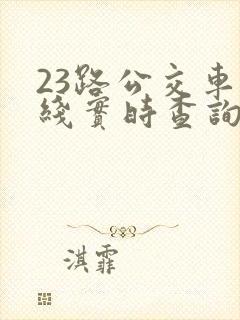 23路公交車
綫實時查詢
淇霏